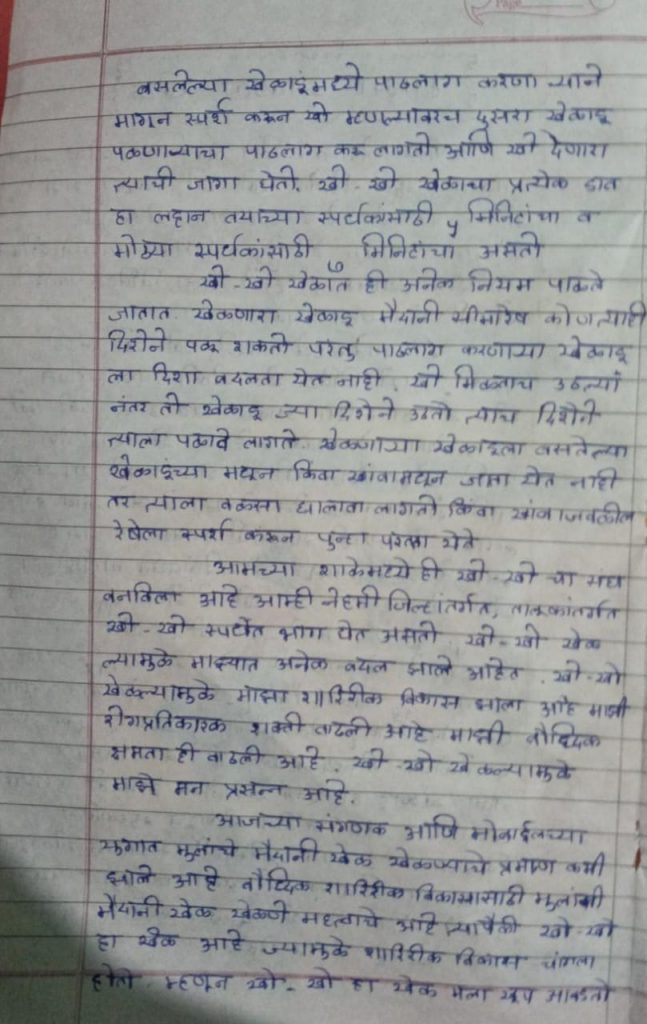 बसलेल्या खेळाडूंमध्ये पाठलाग करणा ऱ्याने
मागून स्पर्श करून खो म्हणल्यावरच दुसरा खेळाडू
पळणाऱ्याचा पाठलाग करू लागतो आणि खो देणारा
त्याची जागा घेतो. खो - खो खेळाचा प्रत्येक डाव
हा लहान वयाच्या स्पर्धकांसाठी ५ मिनिटांचा व
मोठ्या स्पर्धकांसाठी ७ मिनिटांचा असतो
खो - खो खेळात ही अनेक नियम पाळले
जातात. खेळणारा खेळाडू मैदानी सीमारेष कोणत्याही
दिशेने पळू शकतो परंतु पाठलाग करणाऱ्या खेळाडू
ला दिशा बदलता येत नाही. खो मिळताच उठल्या
नंतर तो खेळाडू ज्या दिशेने उठतो त्याच दिशेने
त्याला पळावे लागते. खेळणाऱ्या खेळाडूला बसलेल्या
खेळाडूंच्या मधून किंवा खांबामधून जाता येत नाही
तर त्याला वळसा घालावा लागतो किंवा खांबाजवळील
रेषेला स्पर्श करून पुन्हा परतता येते
आमच्या शाळेमध्ये ही खो - खो चा संघ
बनविला आहे आम्ही नेहमी जिल्हांतर्गत, तालुकांतर्गत
खो - खो स्पर्धेत भाग घेत असतो. खो - खो खेळ
ल्यामुळे माझ्यात अनेक बदल झाले आहेत. खो - खो
खेळल्यामुळे माझा शारिरीक विकास झाला आहे माझी
रोगप्रतिकारक शक्ती वाढली आहे माझी बौध्दिक
क्षमता ही वाढली आहे. खो - खो खेळल्यामुळे
माझे मन प्रसन्न आहे.
आजच्या संगणक आणि मोबाईलच्या
युगात मुलांचे मैदानी खेळ खेळण्याचे प्रमाण कमी
झाले आहे बौध्दिक शारिरीक विकासासाठी मुलांनी
मैदानी खेळ खेळणे महत्वाचे आहे त्यापैकी खो - खो
हा खेळ आहे ज्यामुळे शारिरीक विकास चांगला
होतो. म्हणून खो - खो हा खेळ मला खूप आवडतो